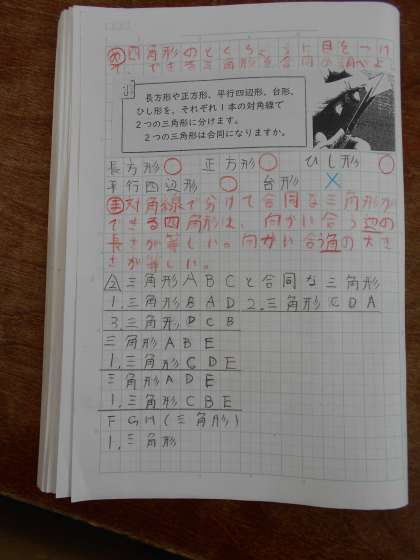 め四角形のとくちょうに目をつけ
て、できた三角形が合同か調べよ
長方形や正方形、平行四辺形、台形、
ひし形を、それぞれ1本の対角線で
2つの三角形に分けます。
2つの三角形は合同になりますか。
長方形○ 正方形○ ひし形○
平行四辺形○ 台形×
ま対角線で分けて合同な三角形が
できる四角形は、向かい合う辺の
長さが等しい。向かい合う角の大き
さが等しい。
△三角形ABCと合同な三角形
1.三角形BAD 2.三角形CDA
3.三角形DCB
三角形ABE
1.三角形CDE
三角形ADE
1.三角形CBE
FGH(三角形)
1.三角形